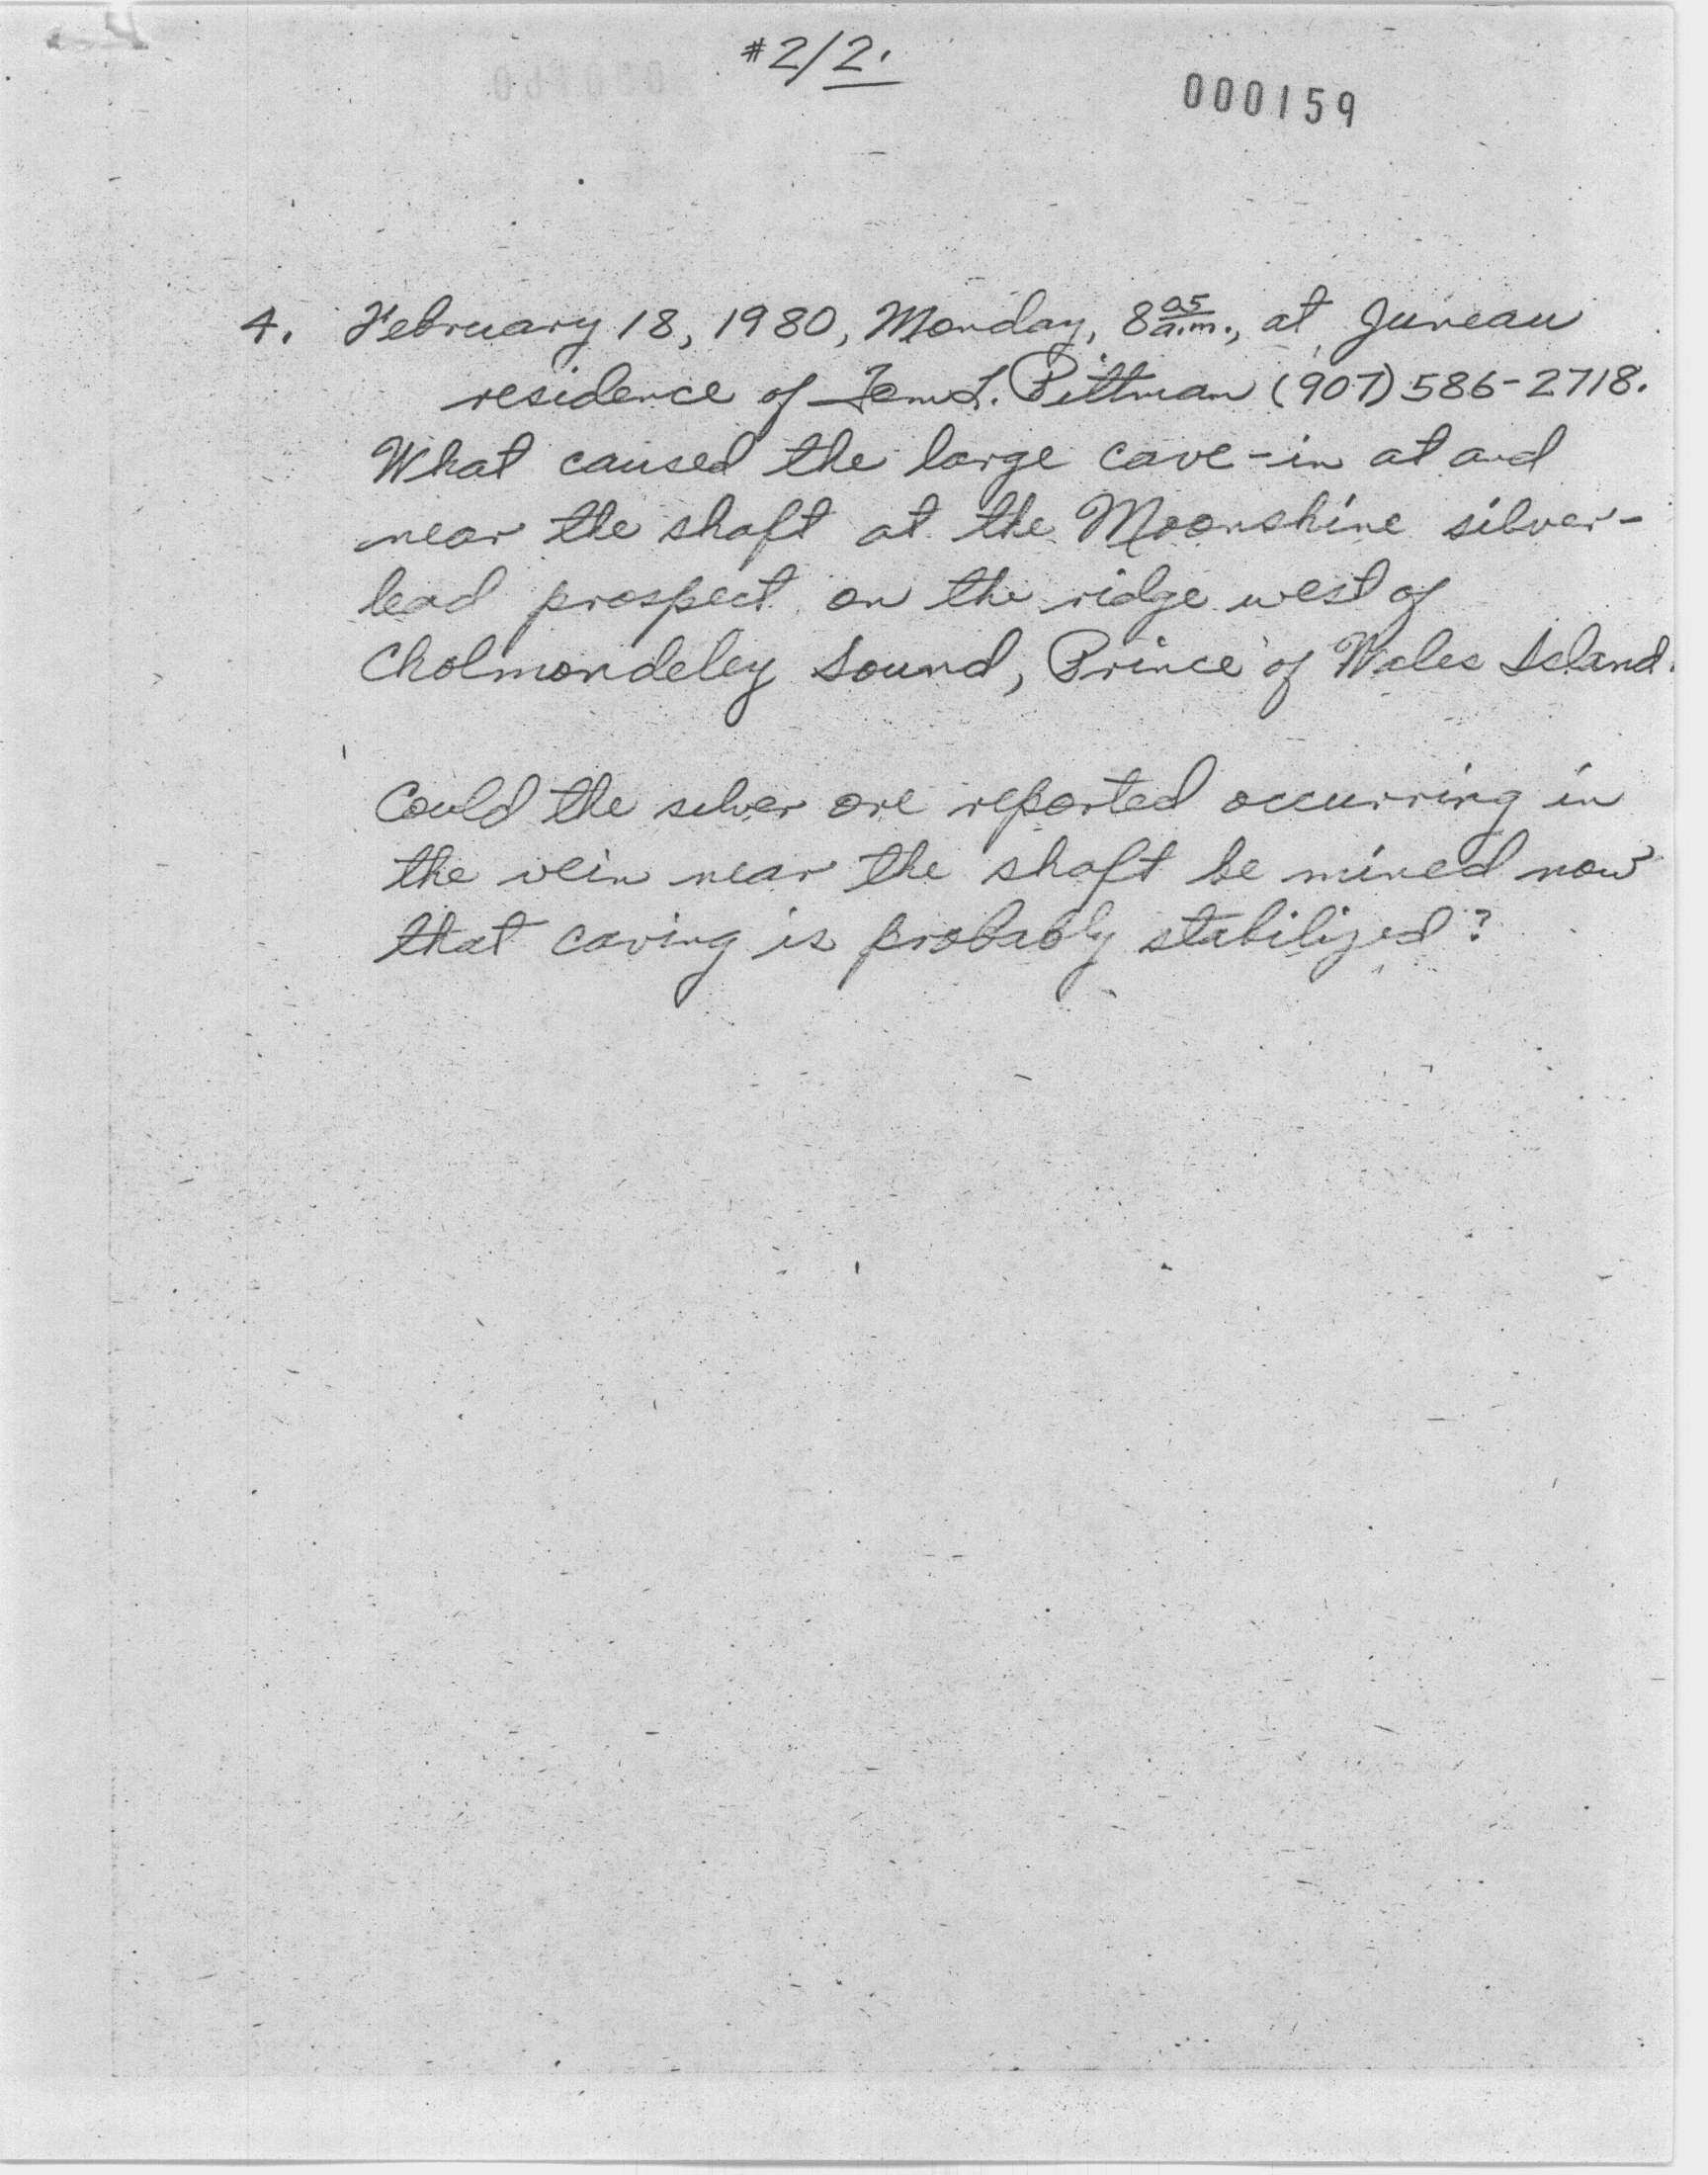 #2/2.
000159
4. February 18, 1980, Monday, 8 05 a.m., at Juneau
residence of Tom L. Pittman (907) 586-2718.
What caused the large cave-in at and
near the shaft at the Moonshine silver-
lead prospect on the ridge west of
Cholmondeley Sound, Prince of Wales Island.
Could the silver ore reported occurring in
the vein near the shaft be mined now
that caving is probably stabilized?